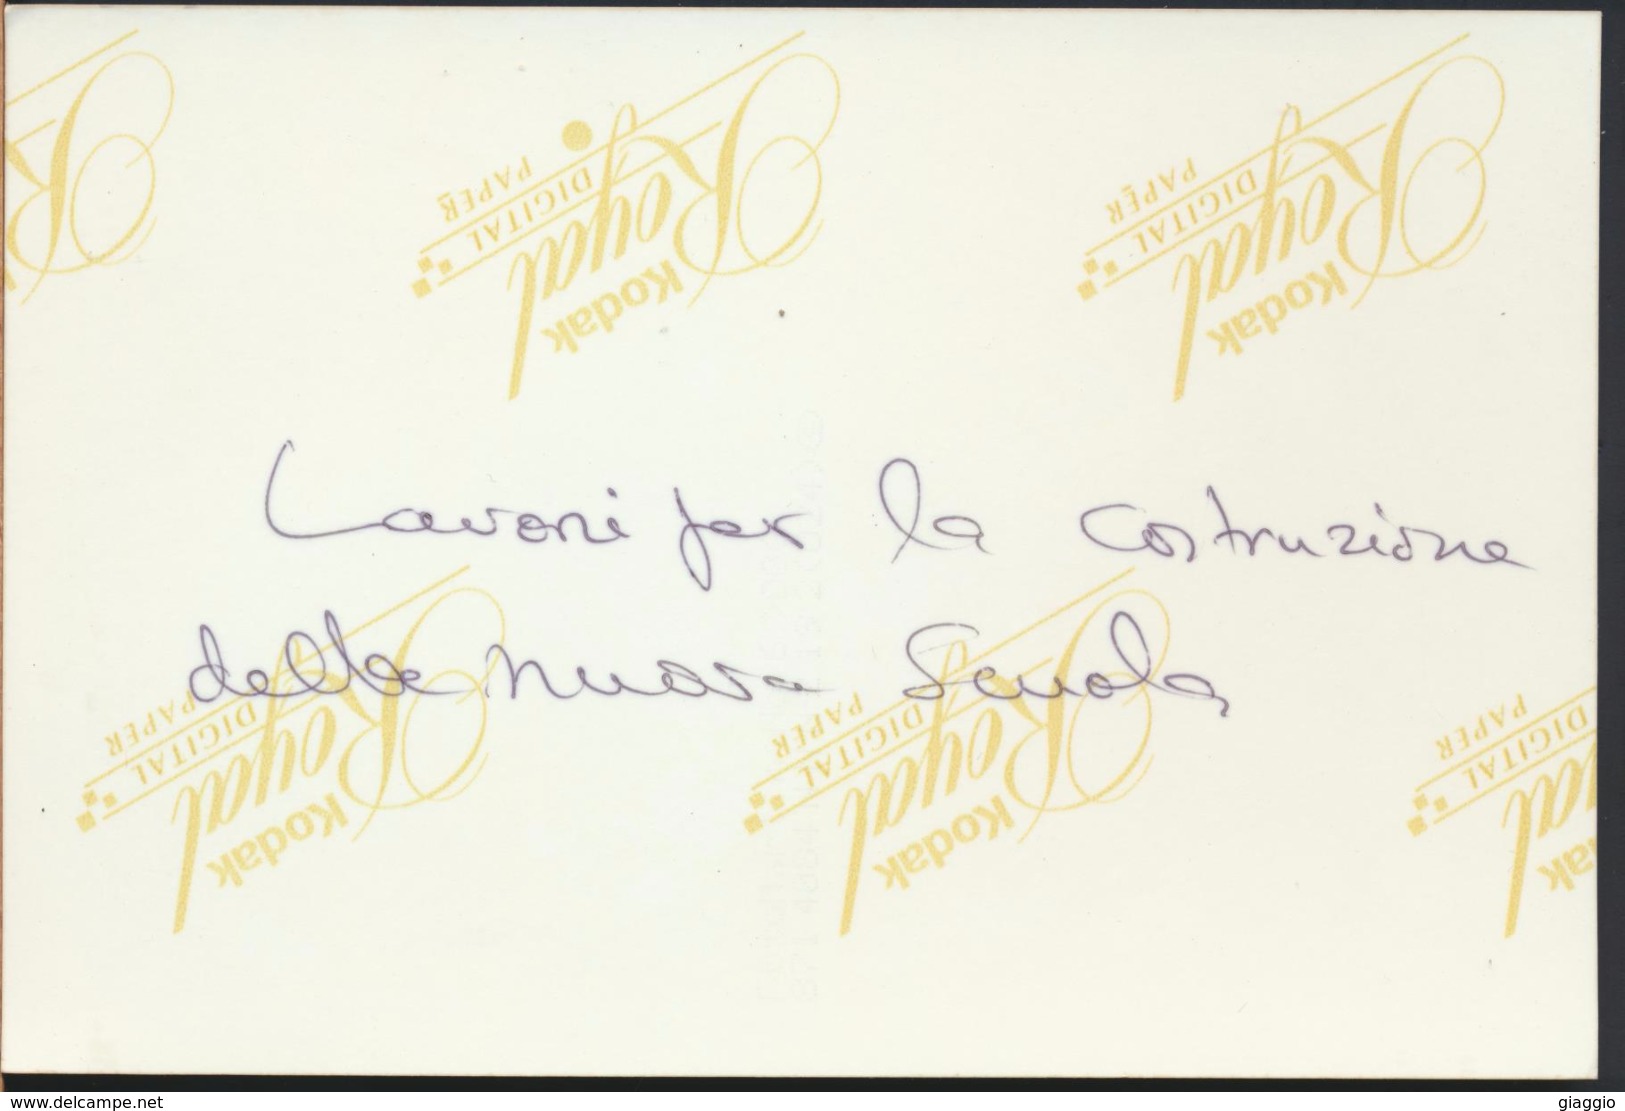 Kodak
Royal
DIGITAL
PAPER
Kodak
Royal
DIGITAL
PAPER
Lavori per la costruzione
della nuova Scuola
Kodak
Royal
DIGITAL
PAPER
Kodak
Royal
DIGITAL
PAPER
DIGITAL
PAPER
www.delcampe.net
giaggio